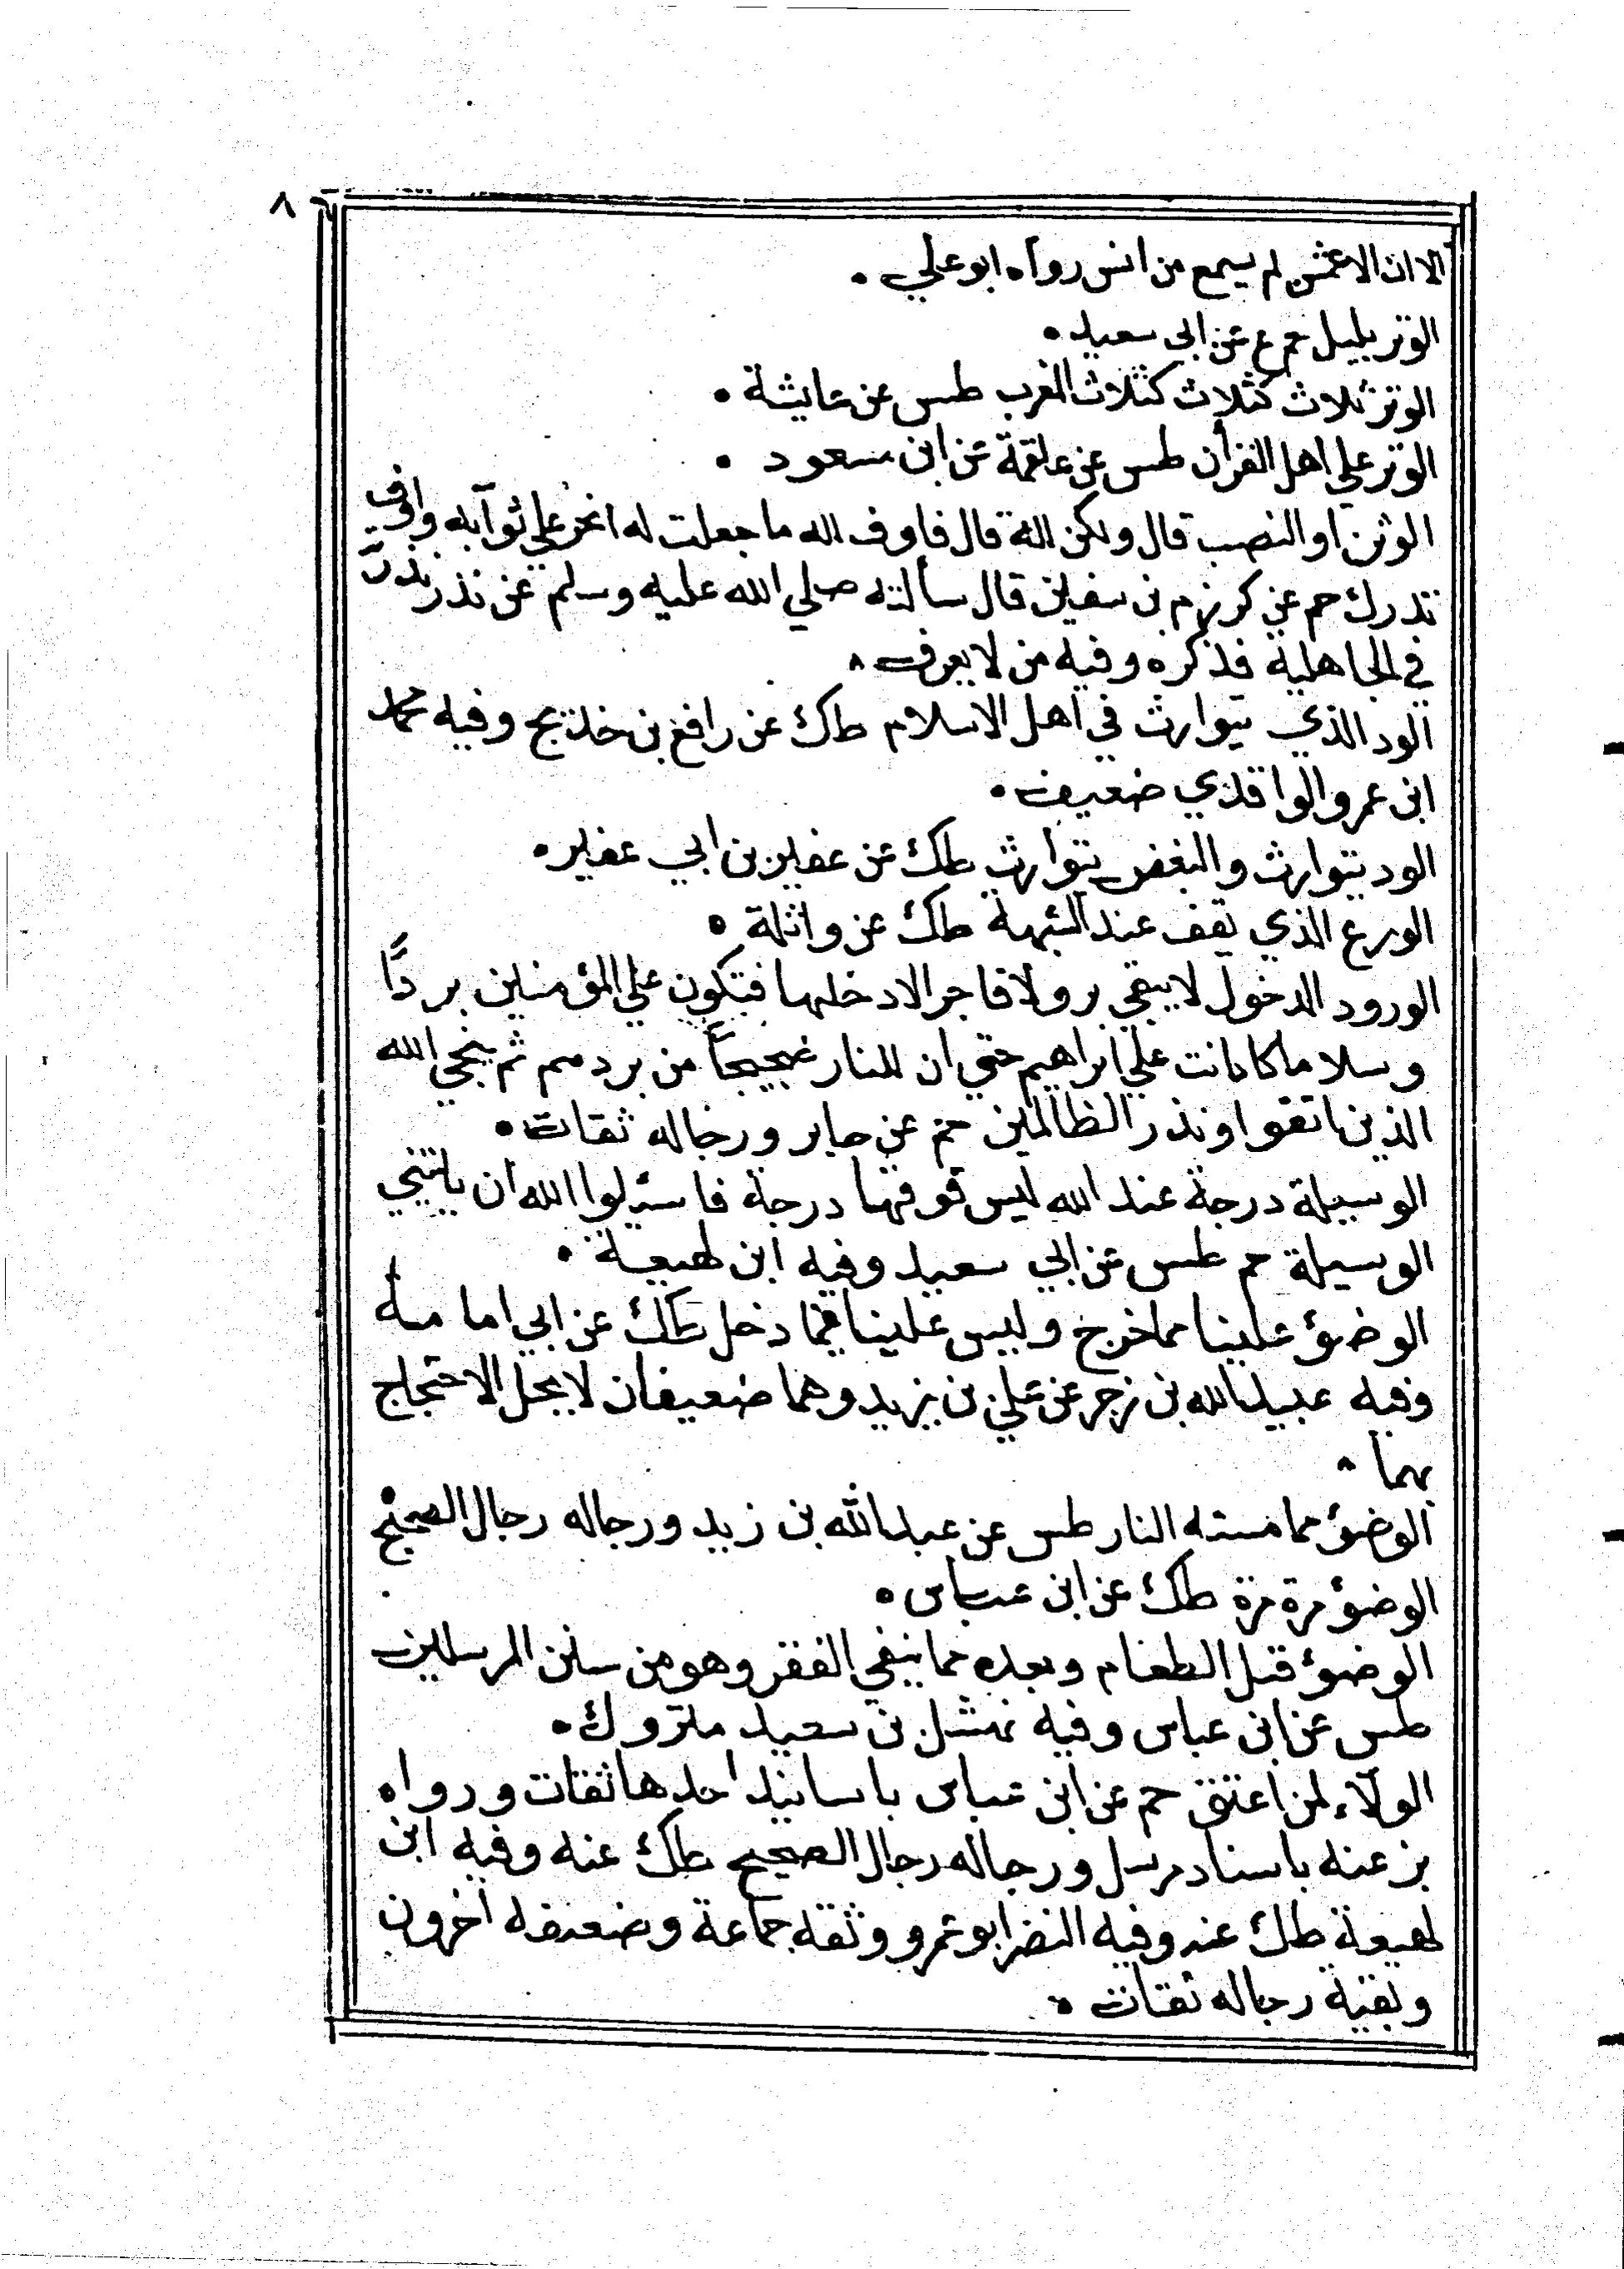 ٨
الا ان الاعمش لم يسمع من انس رواه ابو علي .
الوتر بليل حم ع عن ابي سعيد .
الوتر ثلاث كثلاث كثلاث المغرب طس عن عايشة .
الوتر علي اهل القرآن طس عن علقمة عن ابن مسعود .
الوثن او النصب قال ولكن لله قال فاوف لله ما جعلت له انحر علي ثوابه واوف
نذرك حم عن كردم بن سفين قال سألته صلي الله عليه وسلم عن نذر نذر
في الجاهلية فذكره وفيه من لا يعرف .
الود الذي يتوارث في اهل الاسلام طك عن رافع بن خديج وفيه محمد
ابن عمر والواقدي ضعيف .
الود يتوارث والبغض يتوارث طك عن عفير بن ابي عفير .
الورع الذي يقف عند الشبهة طك عن واثلة .
الورود الدخول لا يبقي بر ولا فاجر الا دخلها فتكون علي المؤمنين بردًا
وسلاما كما كانت علي ابراهيم حتي ان للنار ضجيجاً من بردهم ثم ينجي الله
الذين اتقوا ونذر الظالمين حم عن جابر ورجاله ثقات .
الوسيلة درجة عند الله ليس فوقها درجة فاسئلوا الله ان ياتيني
الوسيلة حم طس عن ابي سعيد وفيه ابن لهيعة .
الوضوٴ علينا مما خرج وليس علينا فيما دخل طك عن ابي امامة
وفيه عبيد الله بن زجر عن علي بن يزيد وهما ضعيفان لا يحل الاحتجاج
بهما .
الوضوٴ مما مسته النار طس عن عبد الله بن زيد ورجاله رجال الصحيح .
الوضوٴ مرة مرة طك عن ابن عباس .
الوضوٴ قبل الطعام وبعده مما ينفي الفقر وهو من سنن المرسلين
طس عن ابن عباس وفيه نهشل بن سعيد متروك .
الولآء لمن اعتق حم عن ابن عباس باسانيد احدها ثقات ورواه
بز عنه باسناد مرسل ورجاله رجال الصحيح طك عنه وفيه ابن
لهيعة طك عنه وفيه النضر ابو عمر ووثقه جماعة وضعفه آخرون
وبقية رجاله ثقات .